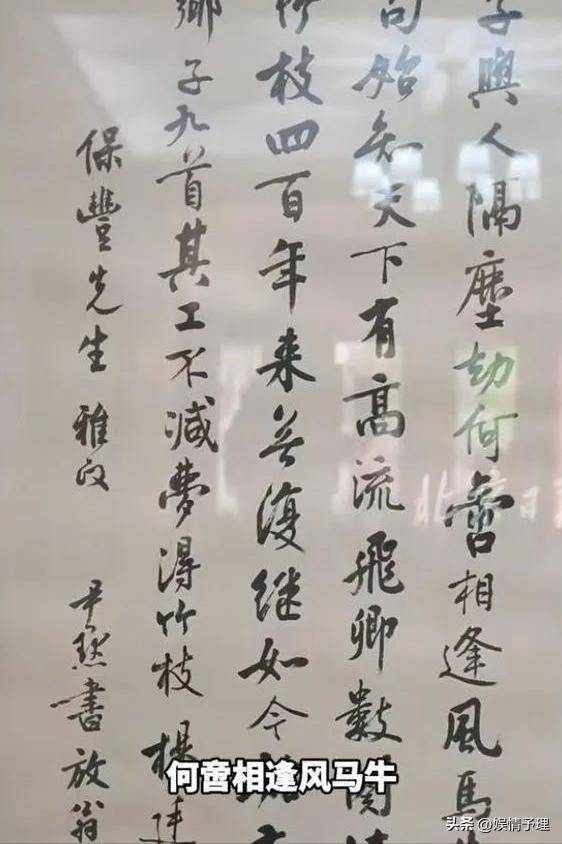 與人隔塵劫何相逢風馬
句始知天下有高流飛卿數闋
竹枝四百年来無復继如今
鄉子九首其工不減夢得竹枝楊廷
保豐先生雅政
尹默書放翁
何啻相逢风马牛
头条 @娱情予理